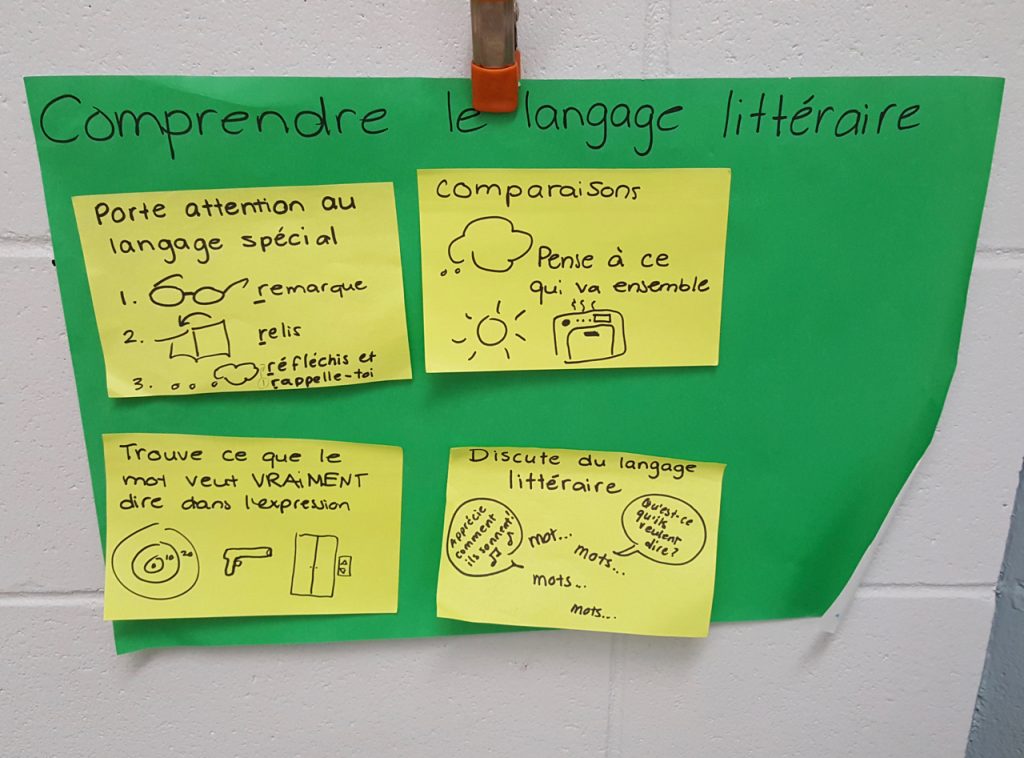 Comprendre le langage littéraire
Porte attention au
langage spécial
1. remarque
2. relis
3. réfléchis et
rappelle-toi
comparaisons
Pense à ce
qui va ensemble
Trouve ce que le
mot veut VRAiMENT
dire dans l'expression
10 20
Discute du langage
littéraire
Apprécie
comment
ils sonnent!
mot...
mots...
mots...
mots...
Qu'est-ce
qu'ils
veulent
dire?